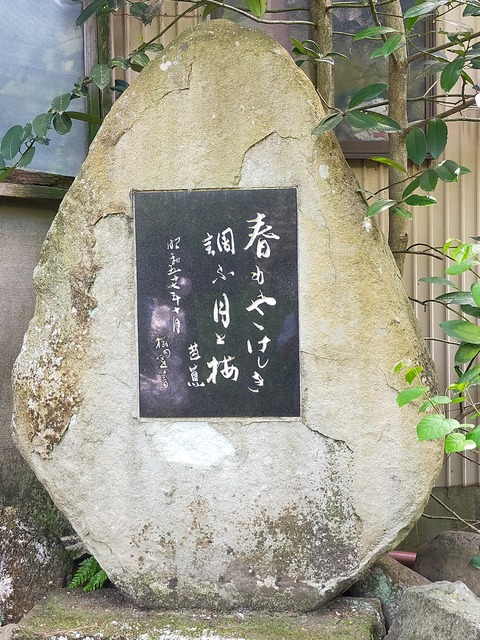 春もやゝけしき
調ふ月と梅
芭蕉
昭和五十七年十月